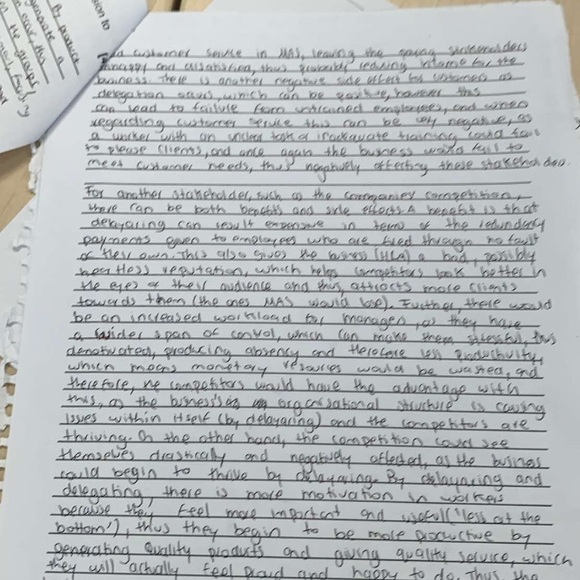 customer service in MAS, leaving the
unhappy and dissatisfied, thus probably reducing income for the
business. There is another negative side effect for customers as
delegation occurs, which can be positive, however this
can lead to failure from untrained employees, and when
regarding customer service this can be very negative, as
a worker with an unclear task or inadequate training could fail
to please clients, and once again the business would fail to
meet customer needs, thus negatively affecting these stakeholders.
For another stakeholder, such as the companies competition,
there can be both benefits and side effects. A benefit is that
delayering can result expensive in terms of the redundency
payments given to employees who are fired through no fault
of their own. This also gives the business a bad, possibly
heartless reputation, which helps competitors look better in
the eyes of their audience and thus, attracts more clients
towards them (the ones MAS would lose). Further, there would
be an increased workload for managers, as they have
a wider span of control, which can make them stressful, thus
demotivated, producing absency and therefore less productivity,
which means monetary resources would be wasted, and
therefore, the competitors would have the advantage with
this, as the business's organisational structure is causing
issues within itself (by delayaring) and the competitors are
thriving. On the other hand, the competition could see
themselves drastically and negatively affected, as the business
could begin to thrive by delayaring. By delayaring and
delegating, there is more motivation in workers
because they feel more important and useful ('less at the
bottom'), thus they begin to be more productive by
generating quality products and giving quality service, which
they will actually feel proud and happy to do. Thus, the